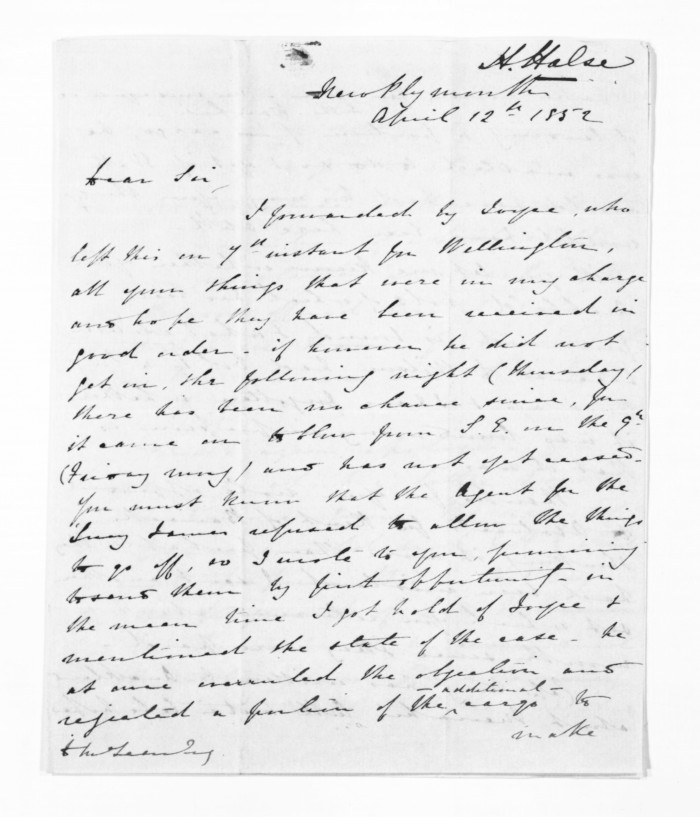 H. Halse
New Plymouth
April 12th 1852
Dear Sir,
I forwarded by Joyce, who
left this on 7th instant for Wellington,
all your things that were in my charge
and hope they have been received in
good order - if however he did not
get in, the following night (Thursday)
there has been no chance since, for
it came on to blow from S.E. on the 9th
(Friday morng) and has not yet ceased.
You must know that the Agent for the
"Lucy James" refused to allow the things
to go off, so I wrote to you, promising
to send them by first opportunity - in
the mean time I got hold of Joyce &
mentioned the state of the case - he
at once overruled the objection and
rejected a portion of the additional cargo to
make